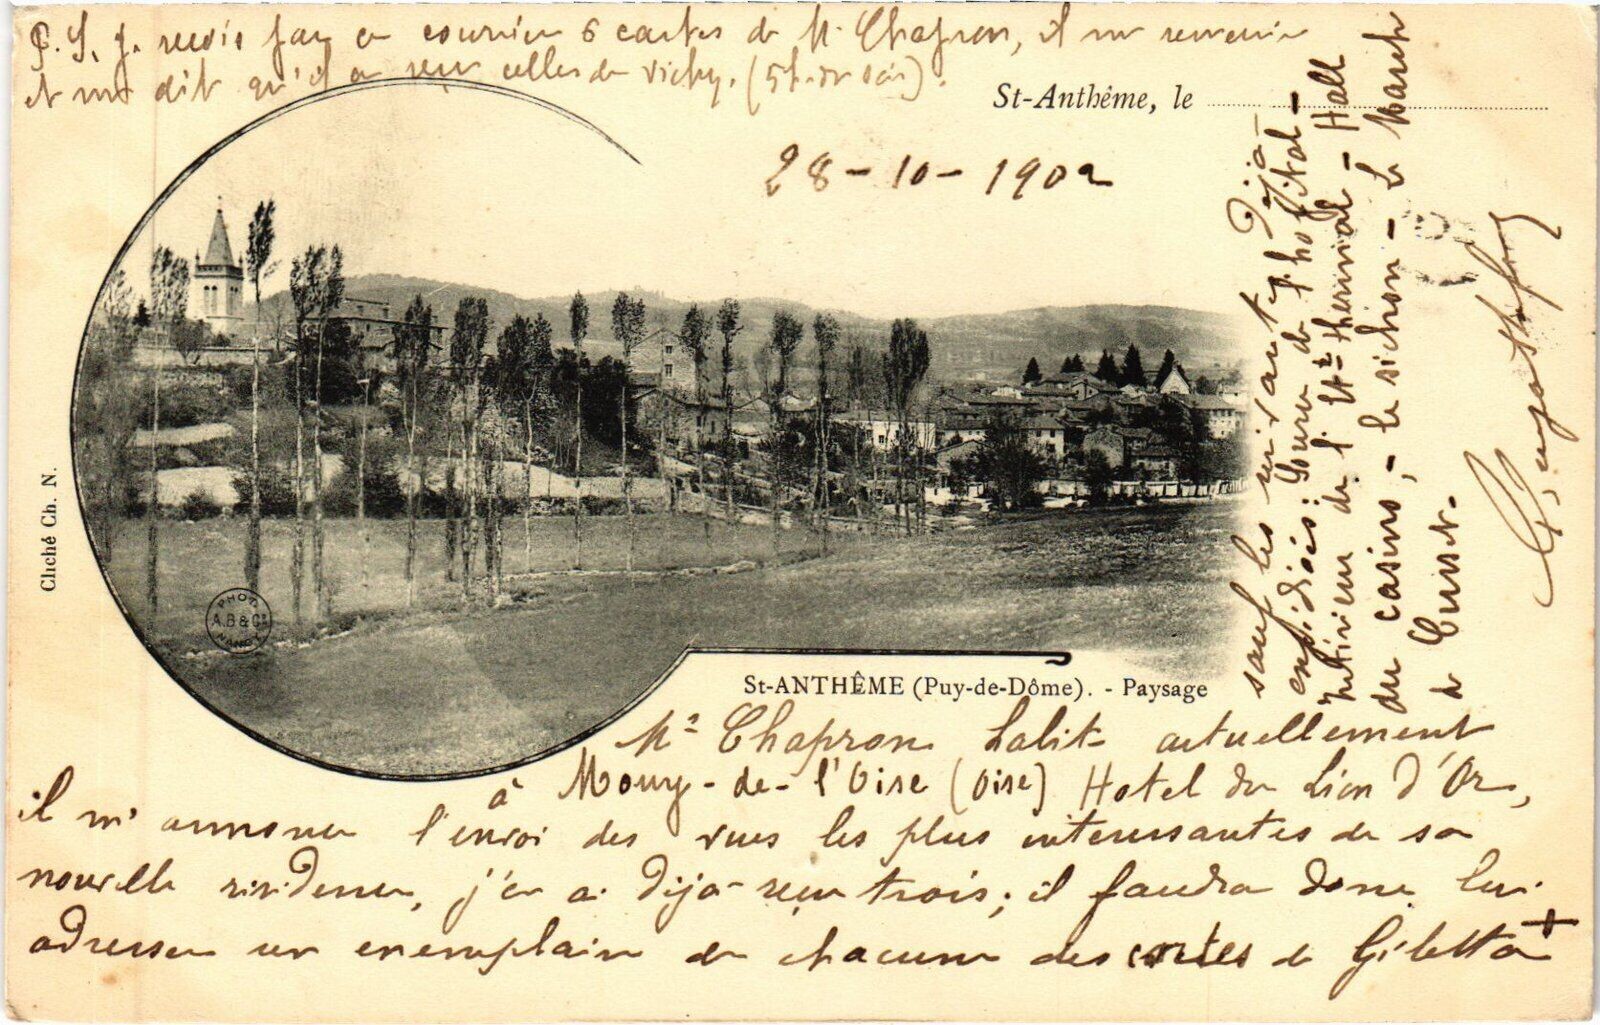 P.S. j. reçois par ce courrier 6 cartes de M. Chapron, il me remercie
et me dit qu'il a reçu celles de Vichy. (5h. du soir).
St-Anthême, le
28-10-1902
Cliché Ch. N.
PHOT.
A.B & Cie
NANCY
St-ANTHÊME (Puy-de-Dôme). - Paysage
Mr Chapron habite actuellement
à Mouy-de-l'Oise (Oise) Hotel du Lion d'Or,
il m'annonce l'envoi des vues les plus interessantes de sa
nouvelle résidence, j'en ai déja reçu trois; il faudra donc lui
adresser un exemplaire de chacune des cartes de Giletta +
sauf les suivantes déja
expédiées: Source de l'hopital -
Intérieur de l' Ett thermal - Hall
du casino, - le sichon - Le Marché
de Cusset.